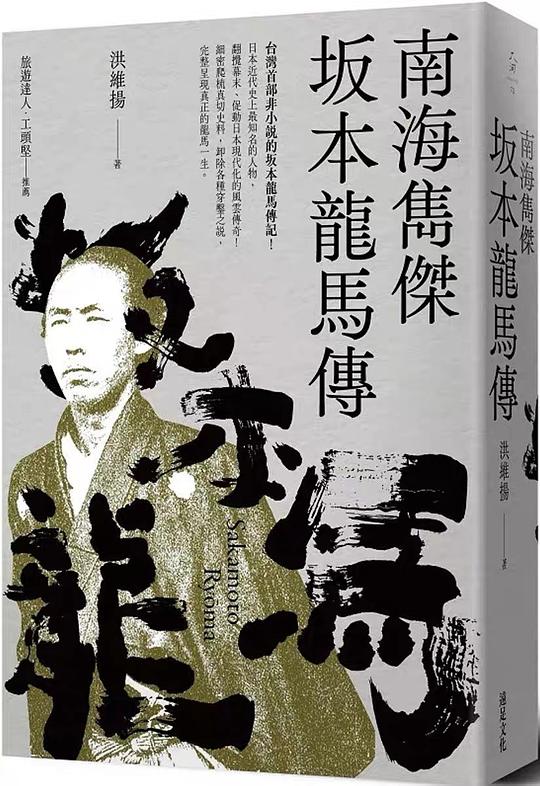 南海雋傑
坂本龍馬傳
台灣首部非小說的坂本龍馬傳記！
日本近代史上最知名的人物，
翻攪幕末、促動日本現代化的風雲傳奇！
細密爬梳真切史料，卸除各種穿鑿之說，
完整呈現真正的龍馬一生。
洪維揚──著
旅遊達人．工頭堅──推薦
坂本龍馬
Sakamoto
Ryoma
南海雋傑
坂本龍馬傳
洪維揚──著
遠足文化